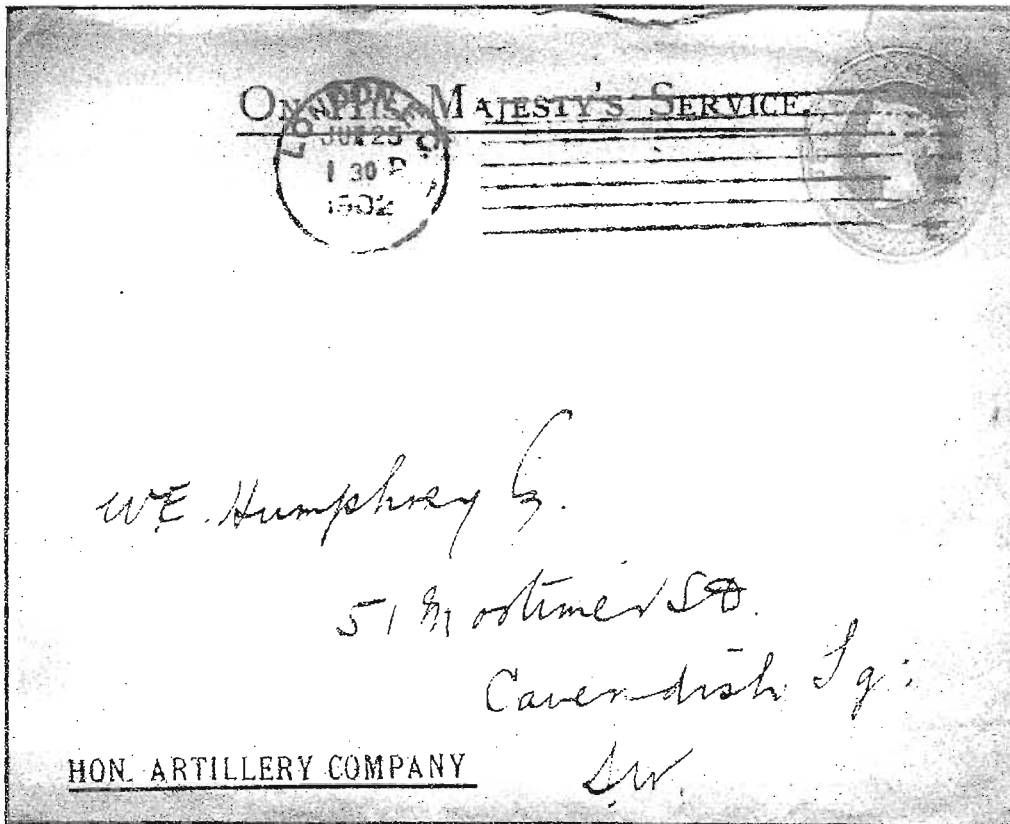 ON HIS MAJESTY'S SERVICE.
LONDON E.C.
JUN 25
1 30 P
1902
W.E. Humphrey
51 Mortimer St.
Cavendish Sq:
S.W.
HON. ARTILLERY COMPANY